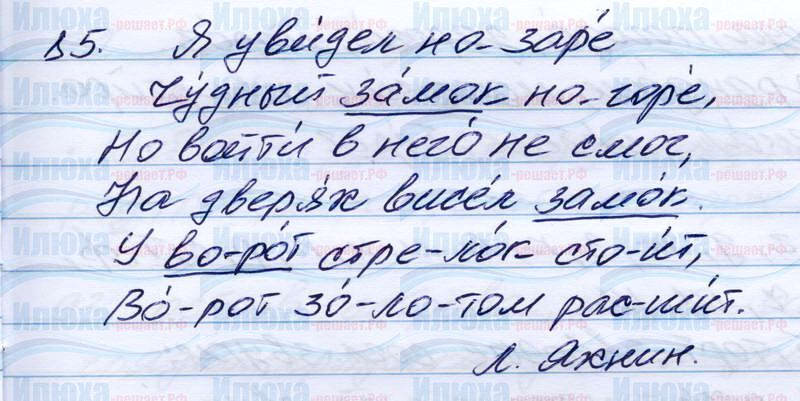 85. Я уви́дел на-заре́
Чу́дный за́мок на-горе́,
Но войти́ в него́ не смог,
На дверя́х висе́л замо́к.
У во-ро́т стре-ло́к сто-и́т,
Во́-рот зо́-ло-том рас-ши́т.
Л. Яхнин.